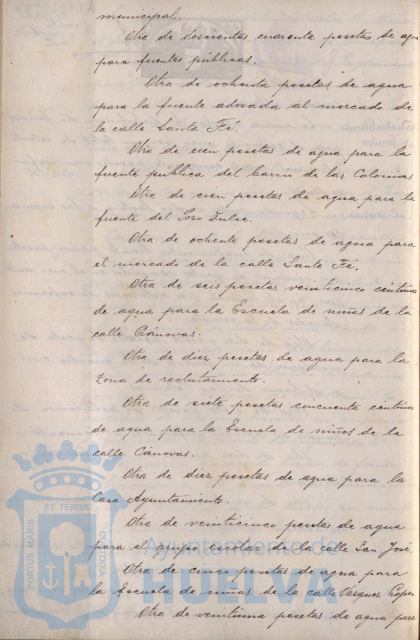 municipal.
Otra de doscientas cuarenta pesetas de agua
para fuentes públicas.
Otra de ochenta pesetas de agua
para la fuente adosada al mercado de
la calle Santa Fé.
Otra de cien pesetas de agua para la
fuente pública del barrio de las Colonias
Otra de cien pesetas de agua para la
fuente del Pozo Dulce.
Otra de ochenta pesetas de agua para
el mercado de la calle Santa Fé.
Otra de seis pesetas veinticinco céntimos
de agua para la Escuela de niños de la
calle Cánovas.
Otra de diez pesetas de agua para la
zona de reclutamiento.
Otra de siete pesetas cincuenta céntimos
de agua para la Escuela de niños de la
calle Cánovas.
Otra de diez pesetas de agua para la
Casa Ayuntamiento.
Otra de veinticinco pesetas de agua
para el grupo escolar de la calle San José.
Otra de cinco pesetas de agua para
la Escuela de niñas de la calle Vazquez López
Otra de veintiuna pesetas de agua para
PORTUS MARIS ET TERRAE CUSTODIA
Ayuntamiento de
HUELVA